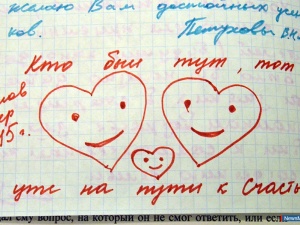 желаю Вам достойных
ков. Петуховы В.К.
Кто был тут, тот
уже на пути к счасть
дал ему вопрос, на который он не смог ответить, или есл